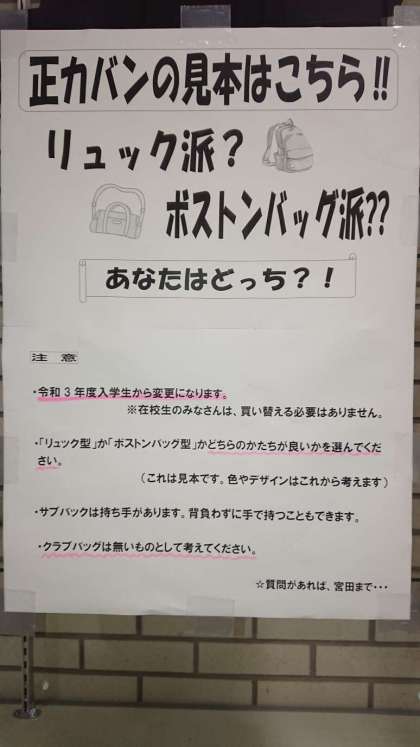 正カバンの見本はこちら!!
リュック派?
ボストンバッグ派??
あなたはどっち?!
注 意
・令和3年度入学生から変更になります。
※在校生のみなさんは、買い替える必要はありません。
・「リュック型」か「ボストンバッグ型」かどちらのかたちが良いかを選んでくだ
さい。
(これは見本です。色やデザインはこれから考えます)
・サブバックは持ち手があります。背負わずに手で持つこともできます。
・クラブバッグは無いものとして考えてください。
☆質問があれば、宮田まで・・・